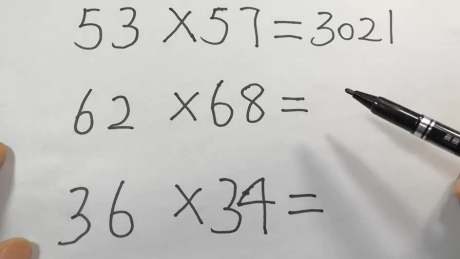 53 ×57=3021
62 ×68=
36 ×34=